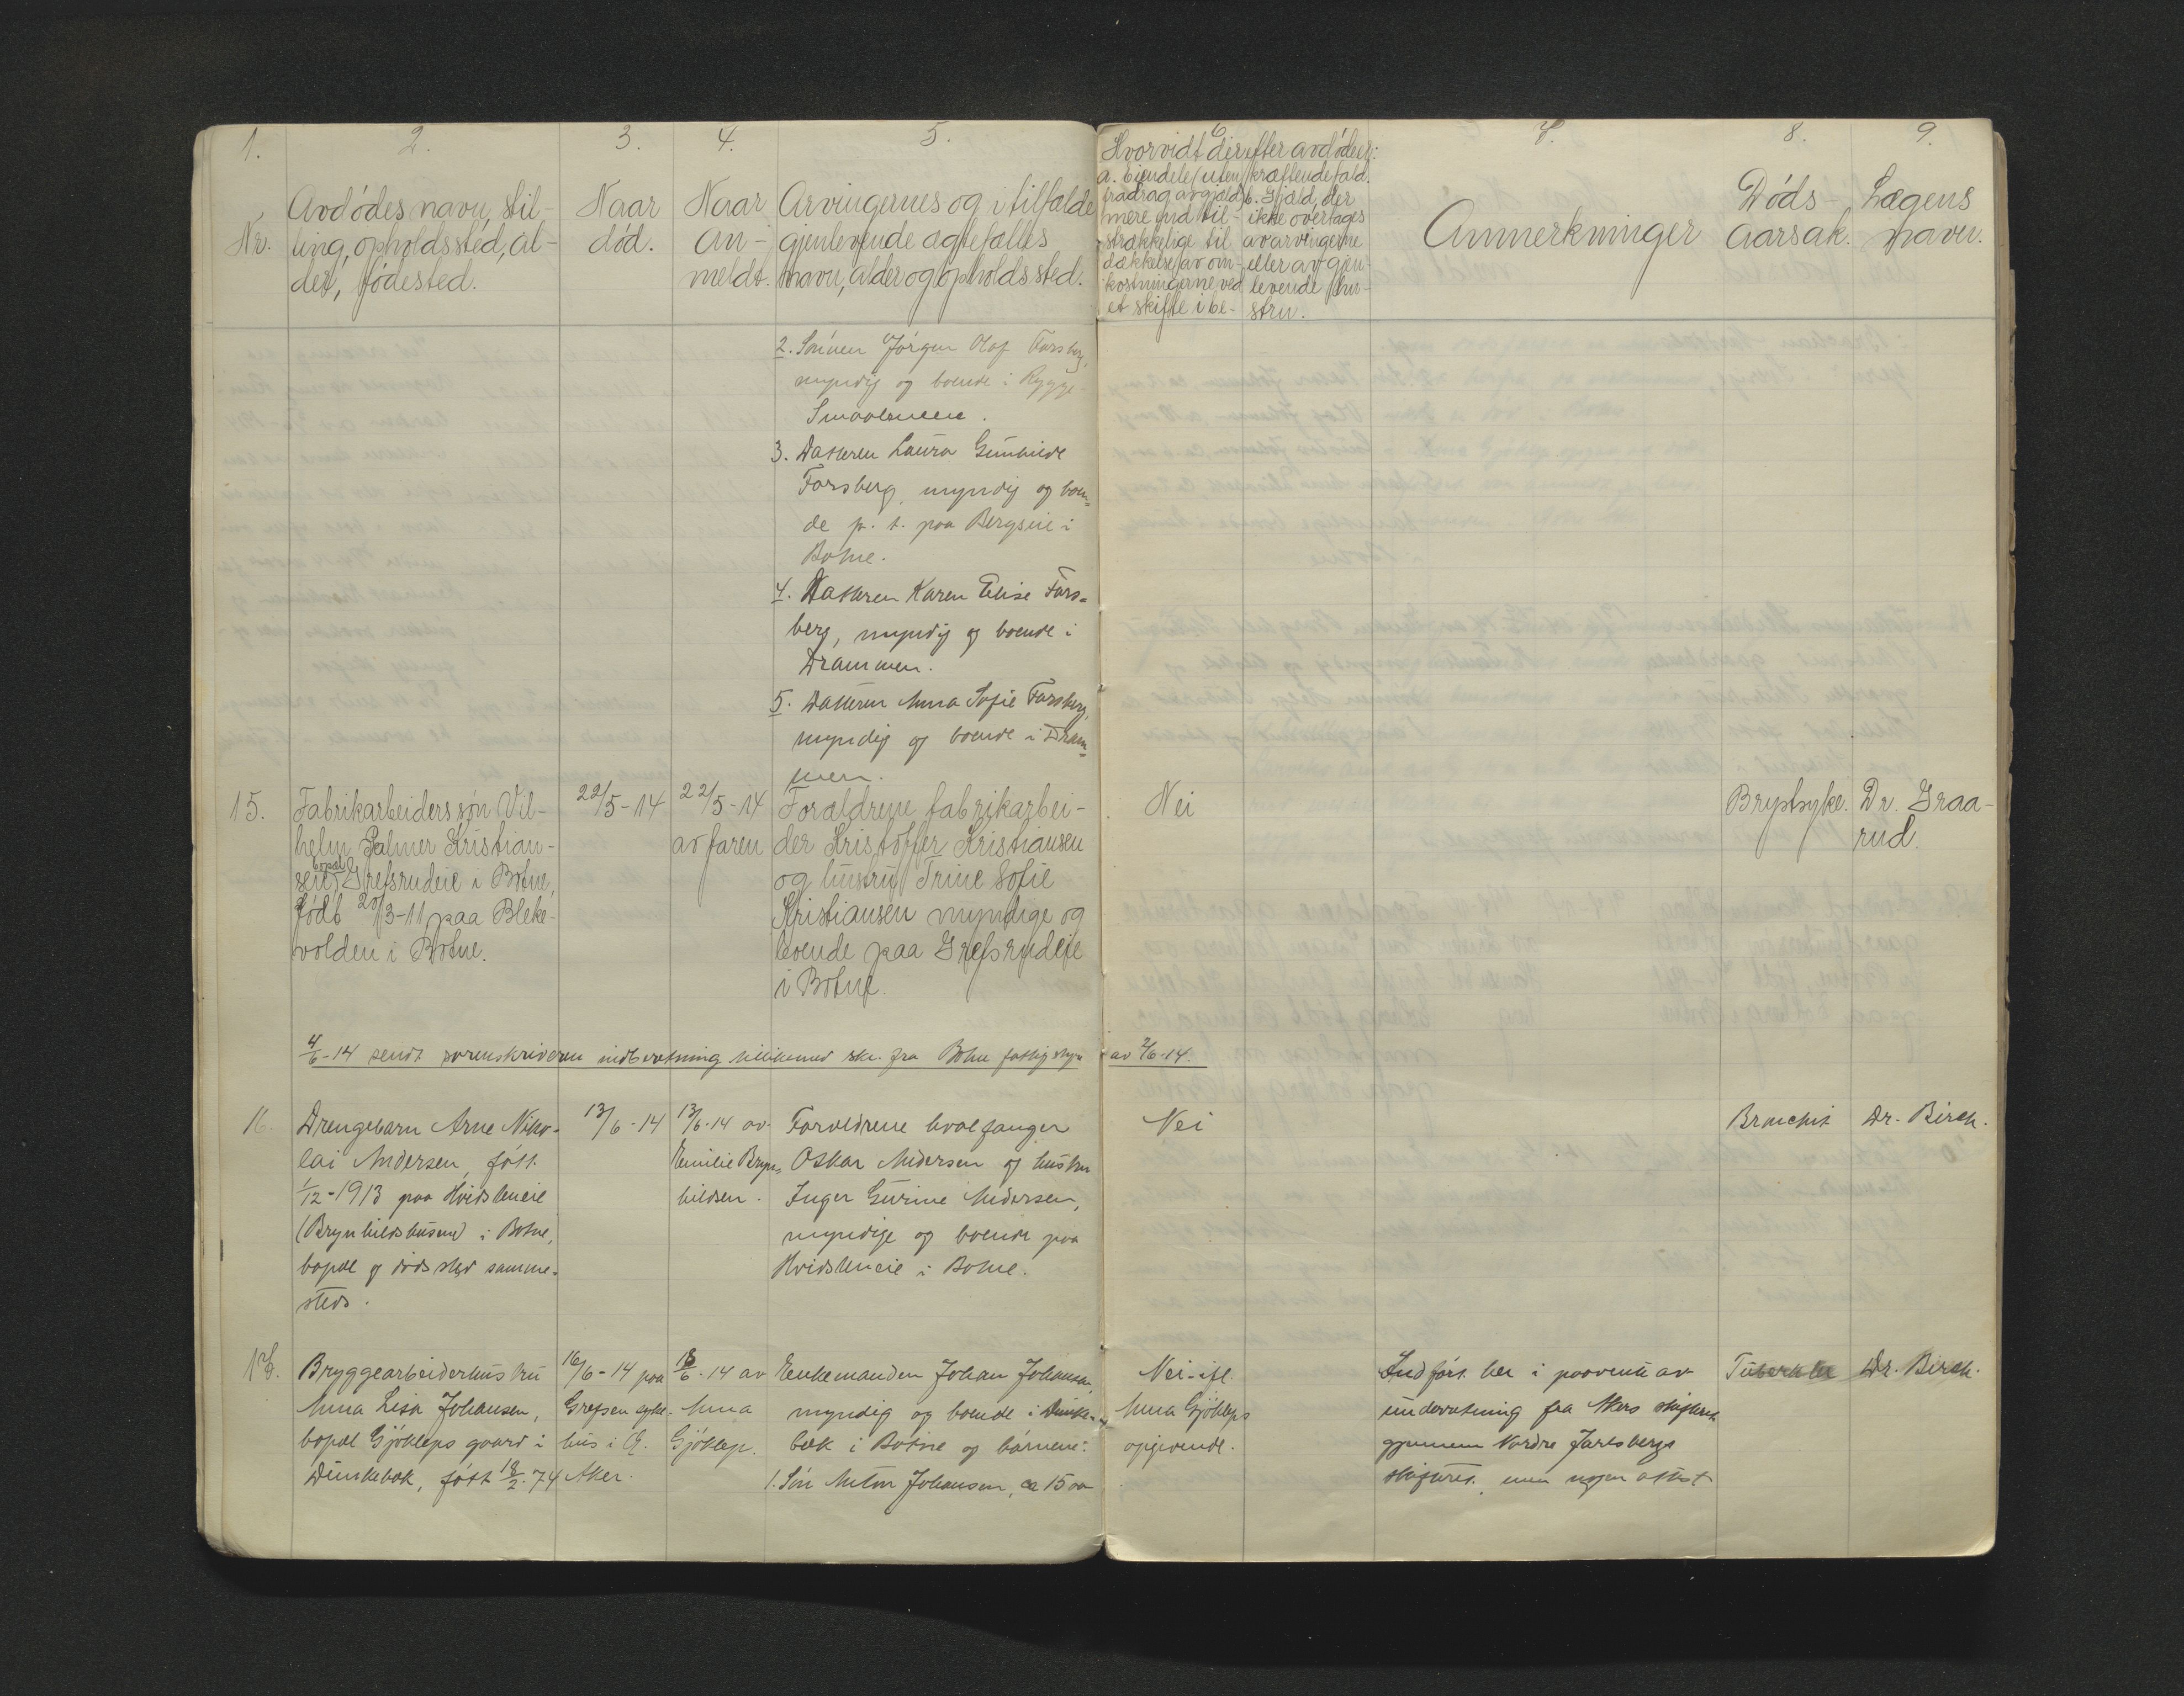 1.
2.
3.
4.
5.
6.
7.
8.
9.
Nr.
Avdødes navn, stil-
ling, opholdssted, al-
der, fødested.
Naar
død.
Naar
an-
meldt.
Arvingernes og i tilfælde
gjenlevende ægtefælles
navn, alder og opholdssted.
Hvorvidt der efter avdøde er:
a. Eiendele (uten
fradrag av gjæld)
mere end til-
strækkelige til
dækkelse av om-
kostningerne ved
et skifte i be-
kræftende fald.
b. Gjæld, der
ikke overtages
av arvingerne
eller av gjen-
levende hu-
stru.
Anmerkninger
Døds-
aarsak.
Lægens
navn.
2. Sønnen Jørgen Olaf Forsberg,
myndig og boende i Rygge
Smaalenene.
3. Datteren Laura
Forsberg, myndig og boen-
de p. t. paa Bergseie i
Botne.
4. Datteren Karen Elise Fors-
berg, myndig og boende i
Drammen.
5. Datteren Anna Sofie Forsberg,
myndig og boende i Dram-
men.
15.
Fabrikarbeiders søn Vil-
helm Palmer Kristian-
sen, bopæl Grefsrudeie i Botne,
født 20/3-11 paa Bleke-
volden i Botne.
22/5-14
22/5-14
av faren
Forældrene fabrikarbei-
der Kristoffer Kristiansen
og hustru Trine Sofie
Kristiansen myndige og
boende paa Grefsrudeie
i Botne.
Nei
Brystsyke.
Dr. Graa-
rud.
4/6-14 sendt sorenskriveren indberetning tillikemed skr. fra Botne fattigstyre av 2/6-14.
16.
Drengebarn Arne Niko-
lai Andersen, født
1/12-1913 paa Hvidsteneie
(Brynhildshusene) i Botne,
bopæl og dødssted samme-
steds.
13/6-14
13/6-14 av
Emilie Bryn-
hildsen.
Forældrene hvalfanger
Oskar Andersen og hustru
Inger Gurine Andersen,
myndige og boende paa
Hvidsteneie i Botne.
Nei
Bronchit
Dr. Birch.
17.
Bryggearbeiderhustru
Anna Lisa Johansen,
bopæl Gjøkleps gaard i
Dunkebæk, født 18/2-74
16/6-14 paa
Grefsen syke-
hus i
Aker.
18/6-14 av
Anna
Gjøklep.
Enkemanden Johan Johansen,
myndig og boende i Dunke-
bæk i Botne og børnene:
1. Søn Anton Johansen, ca 15 aar
Nei ifl.
Anna Gjøkleps
opgivende.
Indført her i paavente av
underretning fra Akers skifteret
gjennem Nordre Jarlsbergs
skifteret, men ingen attest
Tuberkler
Dr. Birch.